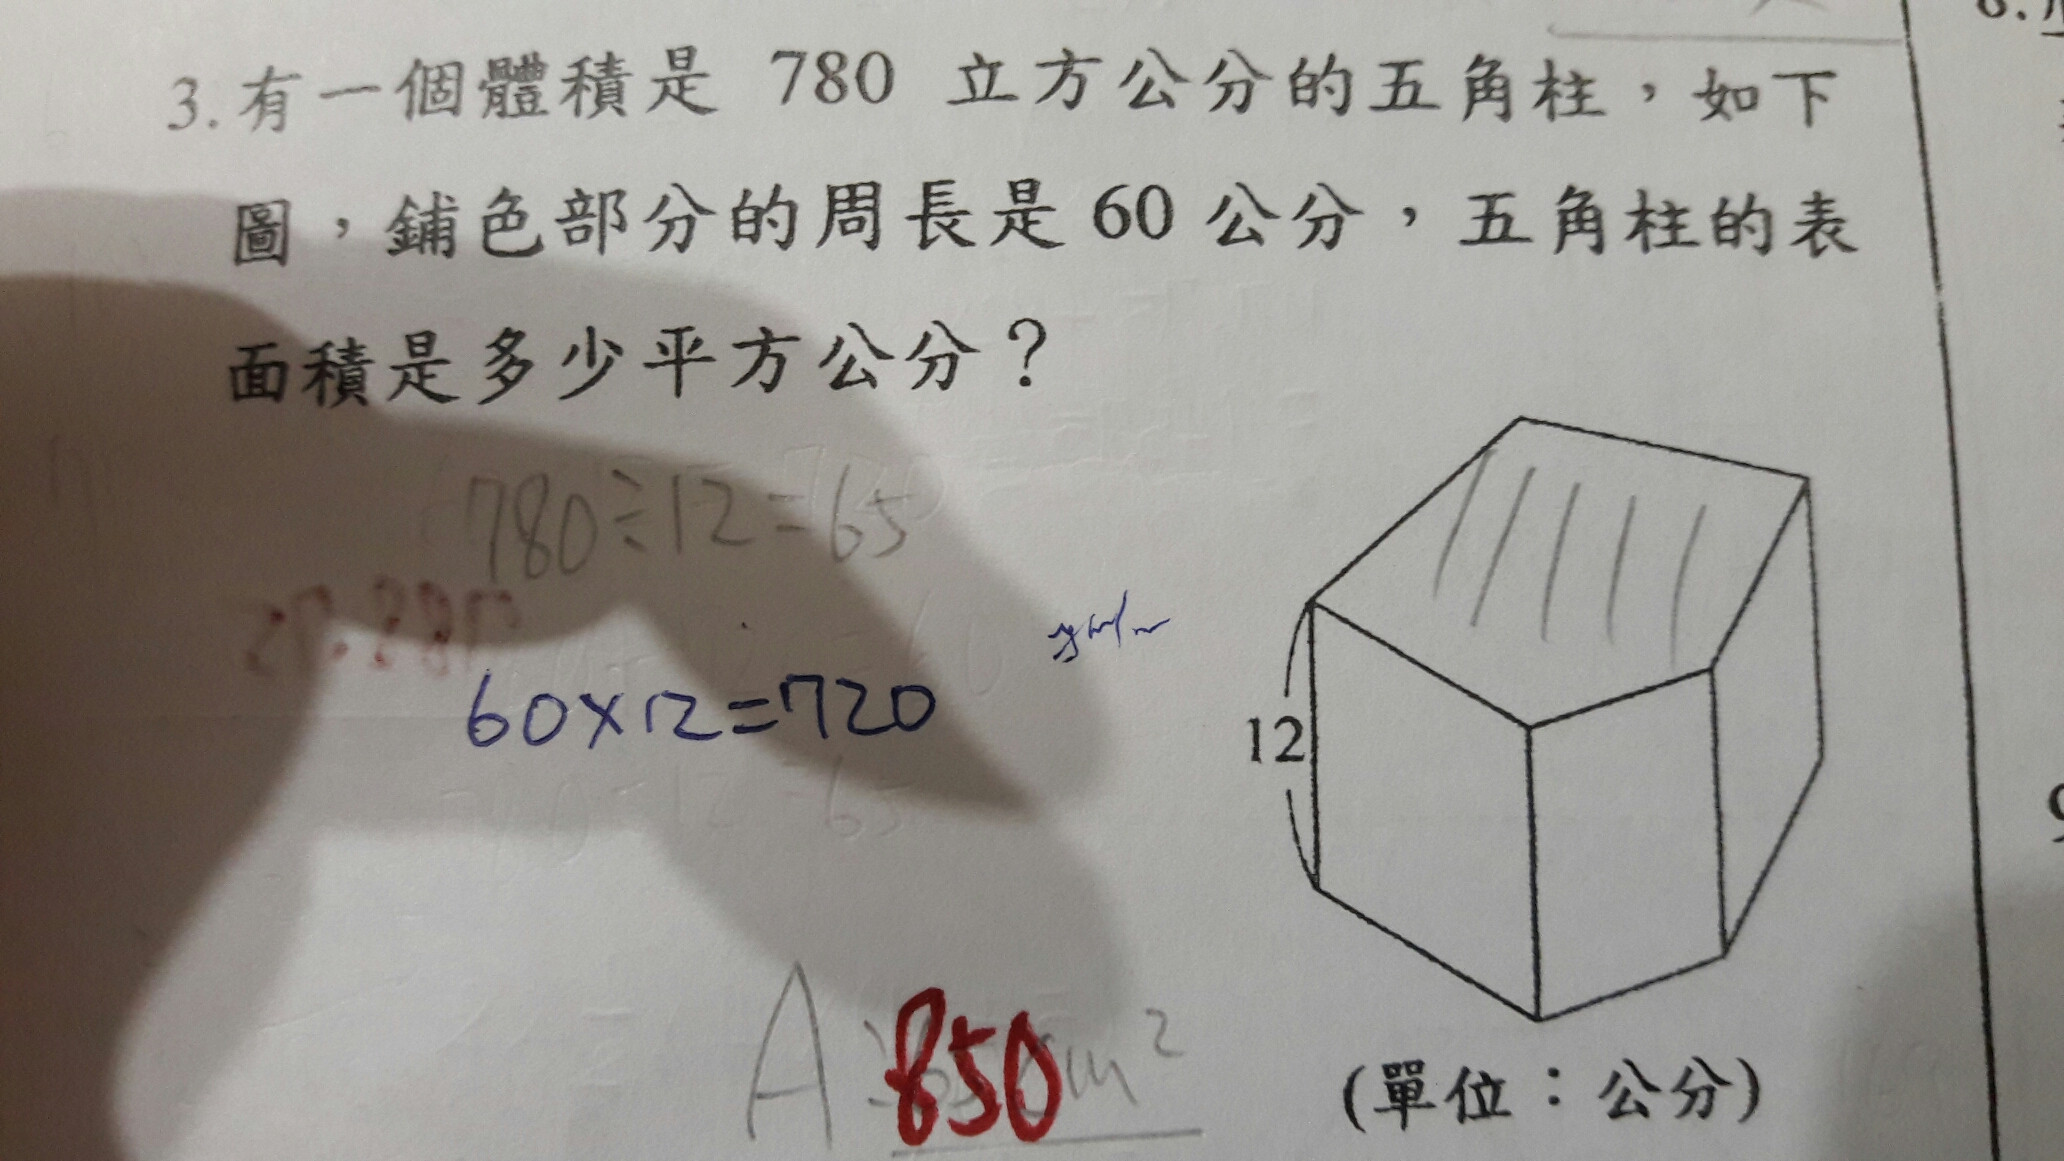 3. 有一個體積是 780 立方公分的五角柱，如下
圖，鋪色部分的周長是 60 公分，五角柱的表
面積是多少平方公分？
780÷12=65
60×12=720
12
A：850cm²
(單位：公分)